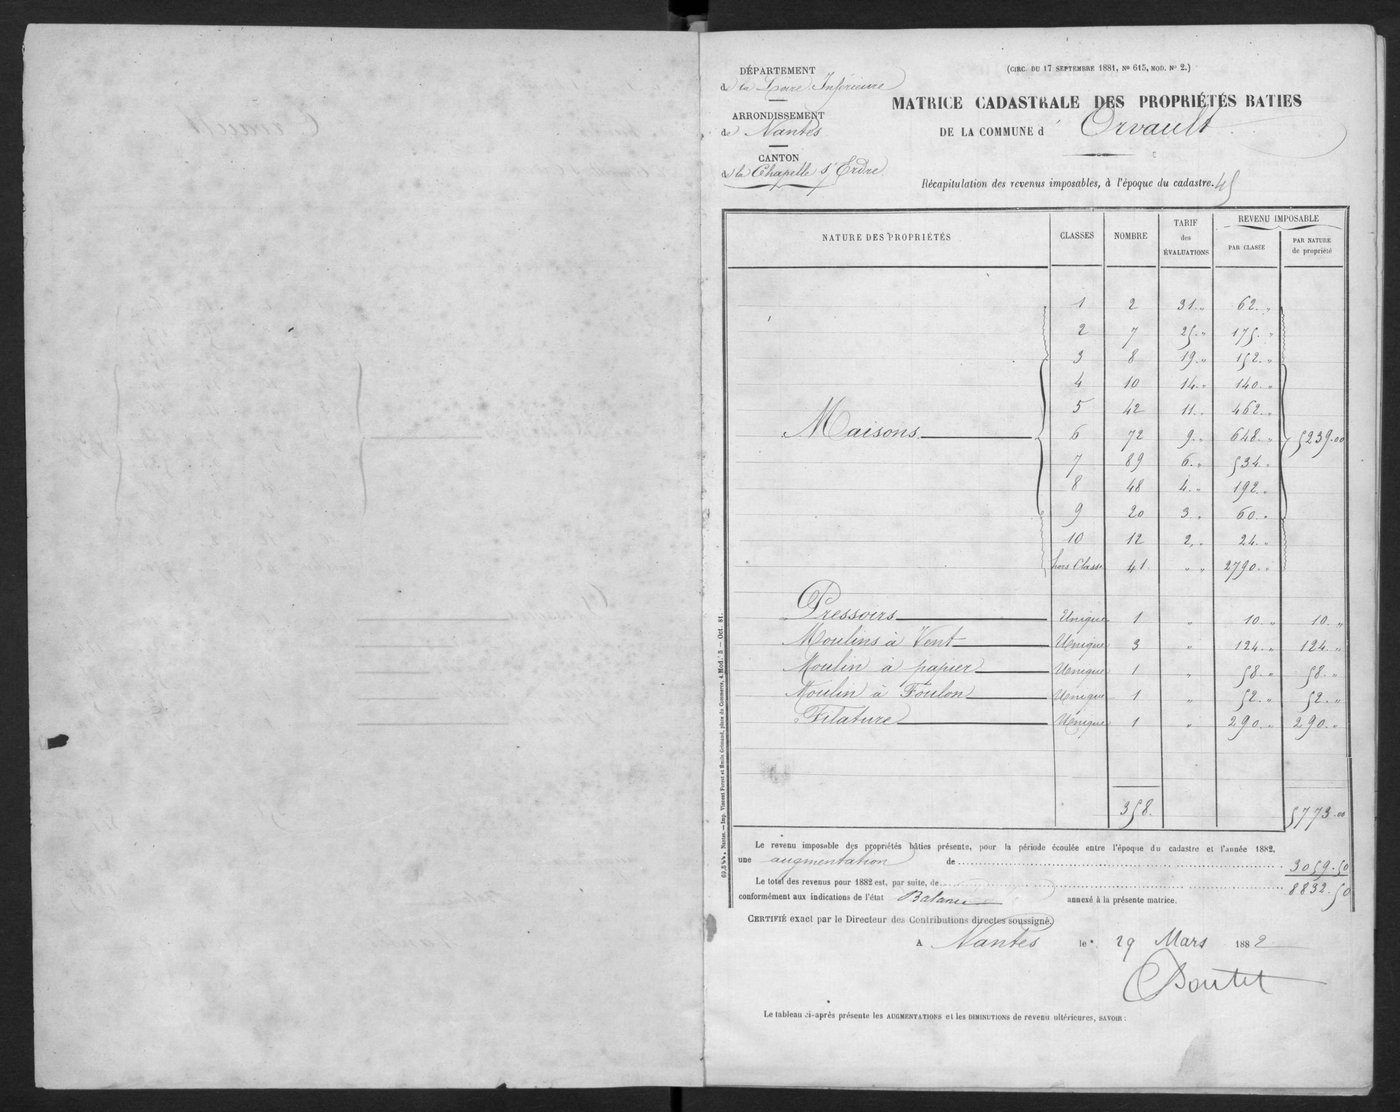 DÉPARTEMENT
de la Loire Inférieure
ARRONDISSEMENT
de Nantes
CANTON
de la Chapelle s/ Erdre
(CIRC. DU 17 SEPTEMBRE 1881, Nº 615, MOD. Nº 2.)
MATRICE CADASTRALE DES PROPRIÉTÉS BATIES
DE LA COMMUNE d'Orvault
Récapitulation des revenus imposables, à l'époque du cadastre.
NATURE DES PROPRIÉTÉS CLASSES NOMBRE TARIF des ÉVALUATIONS REVENU IMPOSABLE PAR CLASSE PAR NATURE de propriété
1 2 31 . „ 62 . „
2 7 25 . „ 175 . „
3 8 19 . „ 152 . „
4 10 14 . „ 140 . „
5 42 11 . „ 462 . „
Maisons 6 72 9 . „ 648 . „ 5239.00
7 89 6 . „ 534 . „
8 48 4 . „ 192 . „
9 20 3 . „ 60 . „
10 12 2 . „ 24 . „
hors Classe 41 „ „ 2790 . „
Pressoirs Unique 1 „ 10 . „ 10 . „
Moulins à Vent Unique 3 „ 124 . „ 124 . „
Moulin à papier Unique 1 „ 58 . „ 58 . „
Moulin à Foulon Unique 1 „ 52 . „ 52 . „
Filature Unique 1 „ 290 . „ 290 . „
358. 5773.00
Le revenu imposable des propriétés bâties présente, pour la période écoulée entre l'époque du cadastre et l'année 1882,
une augmentation de 3059.50
Le total des revenus pour 1882 est, par suite, de 8832.50
conformément aux indications de l'état Balance annexé à la présente matrice.
CERTIFIÉ exact par le Directeur des Contributions directes soussigné.
A Nantes le 29 Mars 1882
Le tableau ci-après présente les AUGMENTATIONS et les DIMINUTIONS de revenu ultérieures, SAVOIR :